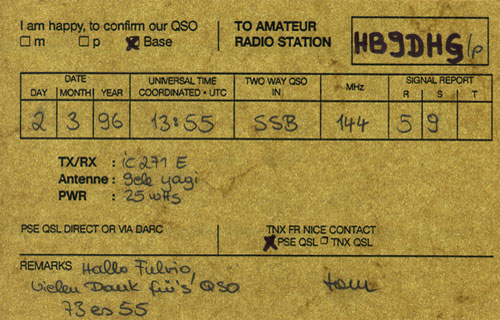 I am happy, to confirm our QSO
□ m □ p ☒ Base
TO AMATEUR
RADIO STATION
HB9DHG/p
DATE
DAY MONTH YEAR
UNIVERSAL TIME
COORDINATED • UTC
TWO WAY QSO
IN
MHz
SIGNAL REPORT
R S T
2 3 96 13:55 SSB 144 5 9
TX/RX : IC 271 E
Antenne : 9ele yagi
PWR : 25 watts
PSE QSL DIRECT OR VIA DARC
TNX FR NICE CONTACT
☒ PSE QSL □ TNX QSL
REMARKS Hallo Fulvio,
vielen Dank für's QSO
73 es 55
tom